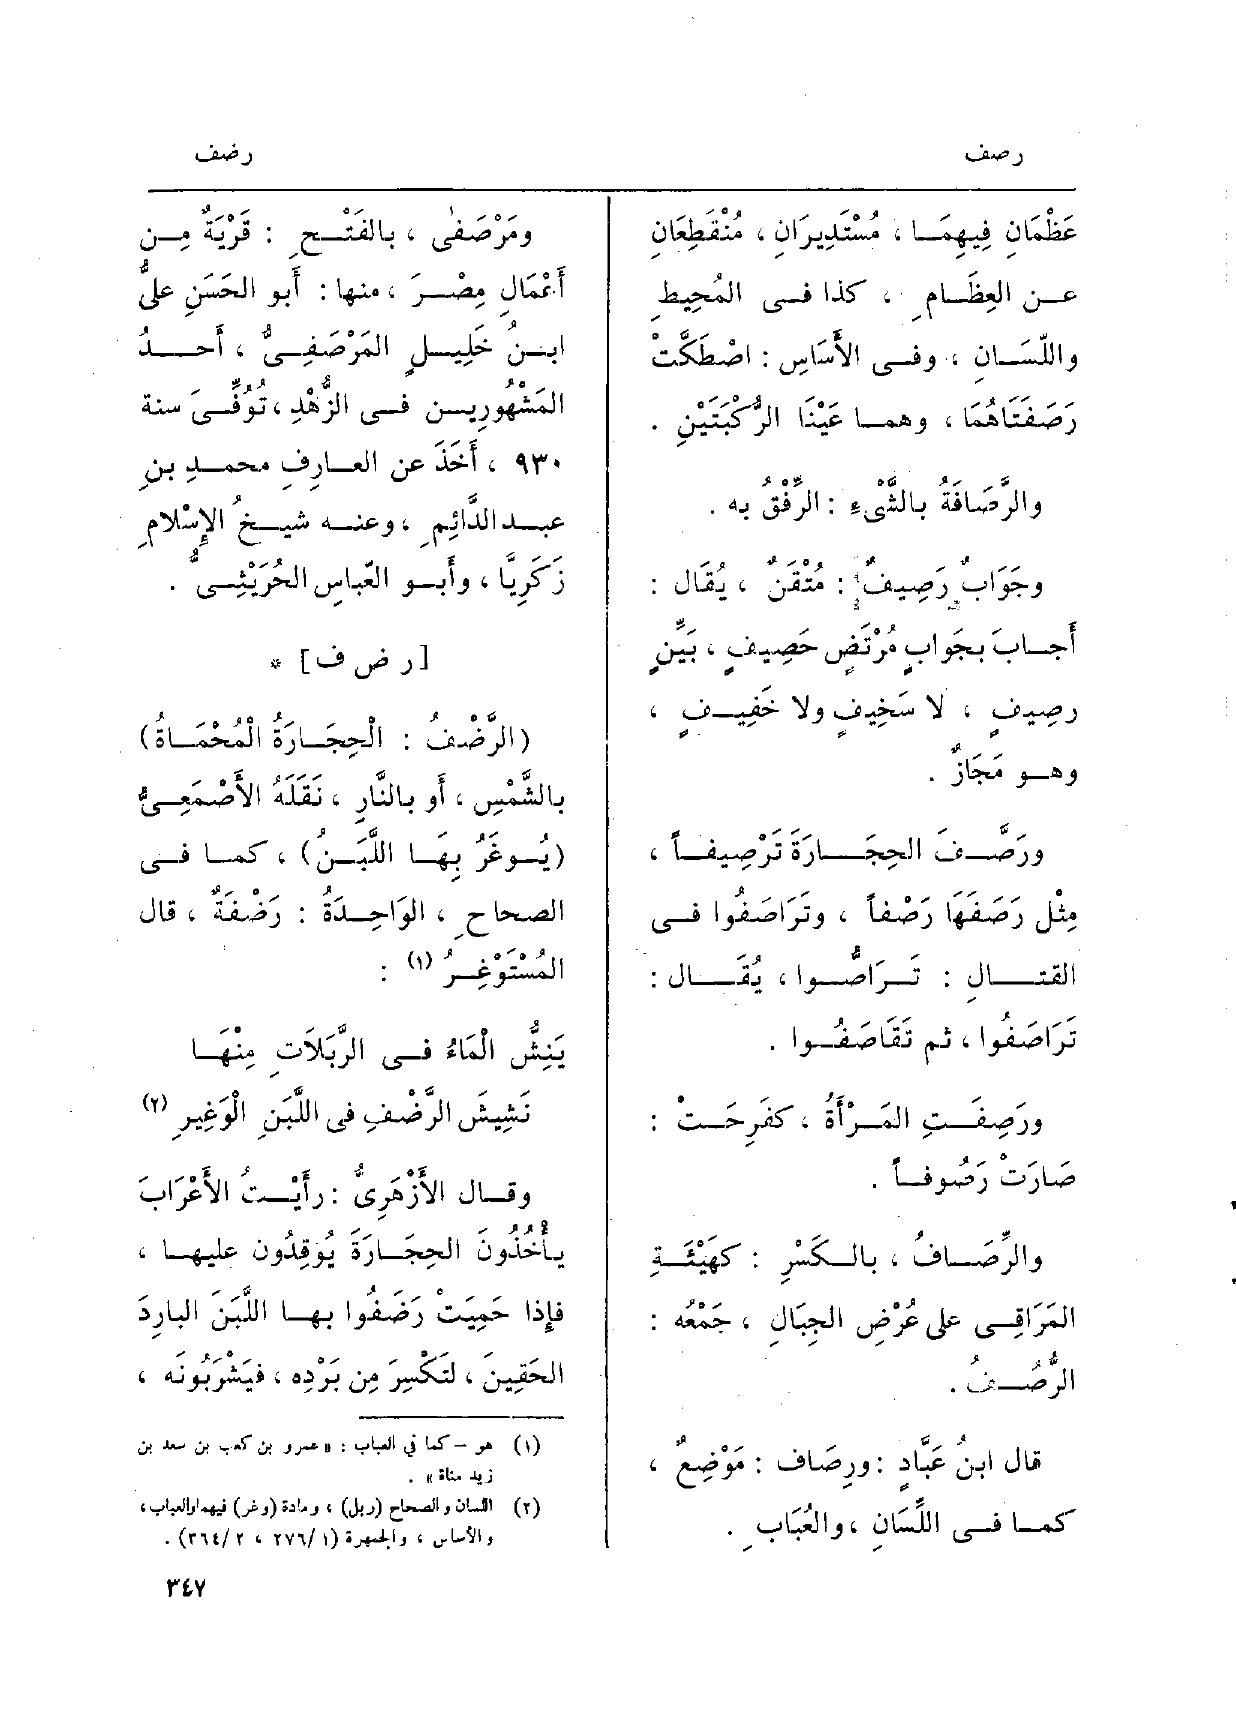 رصف
رضف
عَظْمَانِ فِيهِمَا ، مُسْتَدِيرَانِ ، مُنْقَطِعَانِ
عن العِظَامِ ، كذا فى المُحِيطِ
واللِّسَانِ ، وفى الأَسَاسِ : اصْطَكَّتْ
رَصَفَتَاهُمَا ، وهما عَيْنَا الرُّكْبَتَيْنِ .
والرَّصَافَةُ بالشَّيْءِ : الرِّفْقُ به .
وجَوَابٌ رَصِيفٌ : مُتْقَنٌ ، يُقَال :
أجابَ بجَوابٍ مُرْتَضٍ حَصِيفٍ ، بَيِّنٍ
رصِيفٍ ، لا سَخِيفٍ ولا خَفِيفٍ ،
وهو مَجَازٌ .
ورَصَّفَ الحِجَارَةَ تَرْصِيفاً ،
مِثْل رَصَفَهَا رَصْفاً ، وتَرَاصَفُوا فى
القتالِ : تَرَاصُّوا ، يُقَال :
تَرَاصَفُوا ، ثم تَقَاصَفُوا .
ورَصِفَتِ المَرْأَةُ ، كفَرِحَتْ :
صَارَتْ رَصُوفاً .
والرِّصَافُ ، بالكَسْرِ : كهَيْئَةِ
المَرَاقِى على عُرْضِ الجِبَالِ ، جَمْعُه :
الرُّصُفُ .
قال ابنُ عَبَّادٍ : ورِصَاف : مَوْضِعٌ ،
كما فى اللِّسَانِ ، والعُبَابِ .
ومَرْصَفَى ، بالفَتْحِ : قَرْيَةٌ مِن
أَعْمَالِ مِصْرَ ، منها : أَبو الحَسَنِ علىُّ
ابنُ خَلِيلٍ المَرْصَفِىُّ ، أَحدُ
المَشْهُورِين فى الزُّهْدِ ، تُوُفِّىَ سنة
٩٣٠ ، أَخَذَ عن العارِفِ محمدِ بنِ
عبد الدَّائِمِ ، وعنه شيخُ الإِسْلامِ
زَكَرِيَّا ، وأَبو العَبّاسِ الحُرَيْثِىُّ .
[ ر ض ف ] *
(الرَّضْفُ : الْحِجَارَةُ الْمُحْمَاةُ)
بالشَّمْسِ ، أَو بالنَّارِ ، نَقَلَهُ الأَصْمَعِىُّ
(يُوغَرُ بِهَا اللَّبَنُ) ، كما فى
الصحاحِ ، الوَاحِدَةُ : رَضْفَةٌ ، قال
المُسْتَوْغِرُ (١) :
يَنِشُّ الْمَاءُ فى الرَّبَلَاتِ مِنْهَا
نَشِيشَ الرَّضْفِ فى اللَّبَنِ الْوَغِيرِ (٢)
وقال الأَزْهَرِىُّ : رأَيْتُ الأَعْرَابَ
يأْخُذُونَ الحِجَارَةَ يُوقِدُون عليها ،
فإِذا حَمِيَتْ رَضَفُوا بها اللَّبَنَ البارِدَ
الحَقِينَ ، لتَكْسِرَ مِن بَرْدِه ، فيَشْرَبُونَه ،
(١) هو – كما في العباب : « عمرو بن كعب بن سعد بن
زيد مناة » .
(٢) اللسان والصحاح (ربل) ، ومادة (وغر) فيهما والعباب ،
والأساس ، والجمهرة (١ /٢٧٦ ، ٢ /٣٦٤) .
٣٤٧